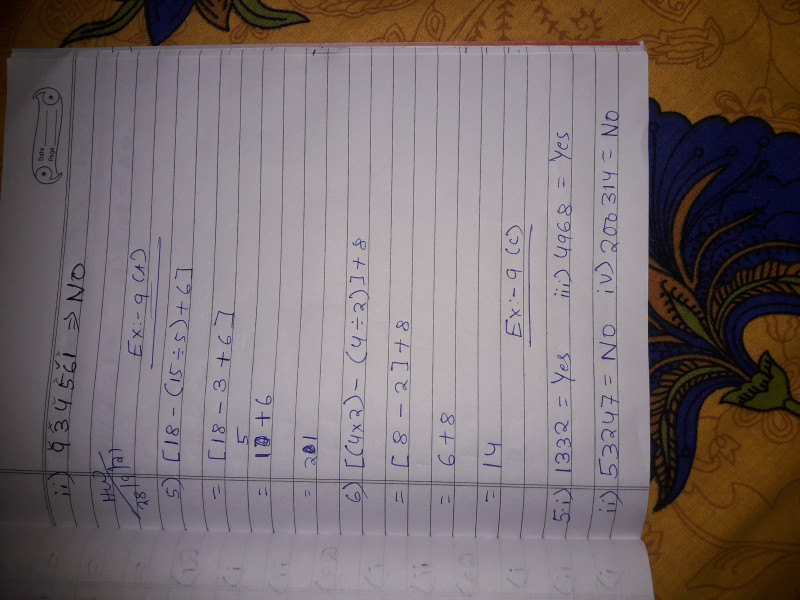 Date
Page
ii) 934561 ⇒ NO
HW
28/9/21
Ex:- 9 (A)
5) [18 - (15 ÷ 5) + 6]
= [18 - 3 + 6]
= 15 + 6
= 21
6) [(4×2) - (4÷2)] + 8
= [8 - 2] + 8
= 6 + 8
= 14
Ex:- 9 (C)
5. i) 1332 = Yes iii) 4968 = Yes
ii) 53247 = NO iv) 200314 = NO